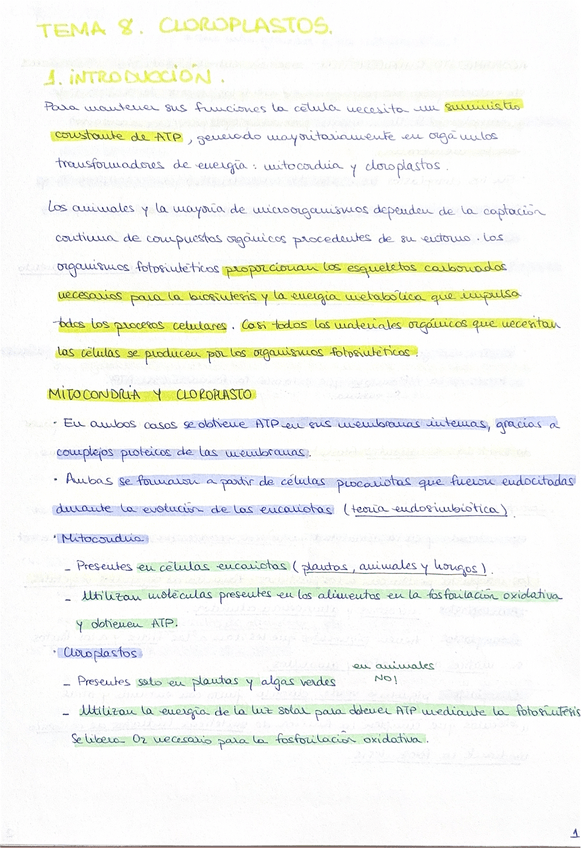 TEMA 8. CLOROPLASTOS.
1. INTRODUCCIÓN.
Para mantener sus funciones la célula necesita un suministro
constante de ATP, generado mayoritariamente en orgánulos
transformadores de energía: mitocondria y cloroplastos.
Los animales y la mayoría de microorganismos dependen de la captación
continua de compuestos orgánicos procedentes de su entorno. Los
organismos fotosintéticos proporcionan los esqueletos carbonados
necesarios para la biosíntesis y la energía metabólica que impulsa
todos los procesos celulares. Casi todos los materiales orgánicos que necesitan
las células se producen por los organismos fotosintéticos.
MITOCONDRIA Y CLOROPLASTO
· En ambos casos se obtiene ATP en sus membranas internas, gracias a
complejos proteicos de las membranas.
· Ambas se formaron a partir de células procariotas que fueron endocitadas
durante la evolución de las eucariotas (teoría endosimbiótica).
· Mitocondria
- Presentes en células eucariotas (plantas, animales y hongos).
- Utilizan moléculas presentes en los alimentos en la fosforilación oxidativa
y obtienen ATP.
· Cloroplastos
en animales
- Presentes solo en plantas y algas verdes NO!
- Utilizan la energía de la luz solar para obtener ATP mediante la fotosíntesis
Se libera O2 necesario para la fosforilación oxidativa.
1